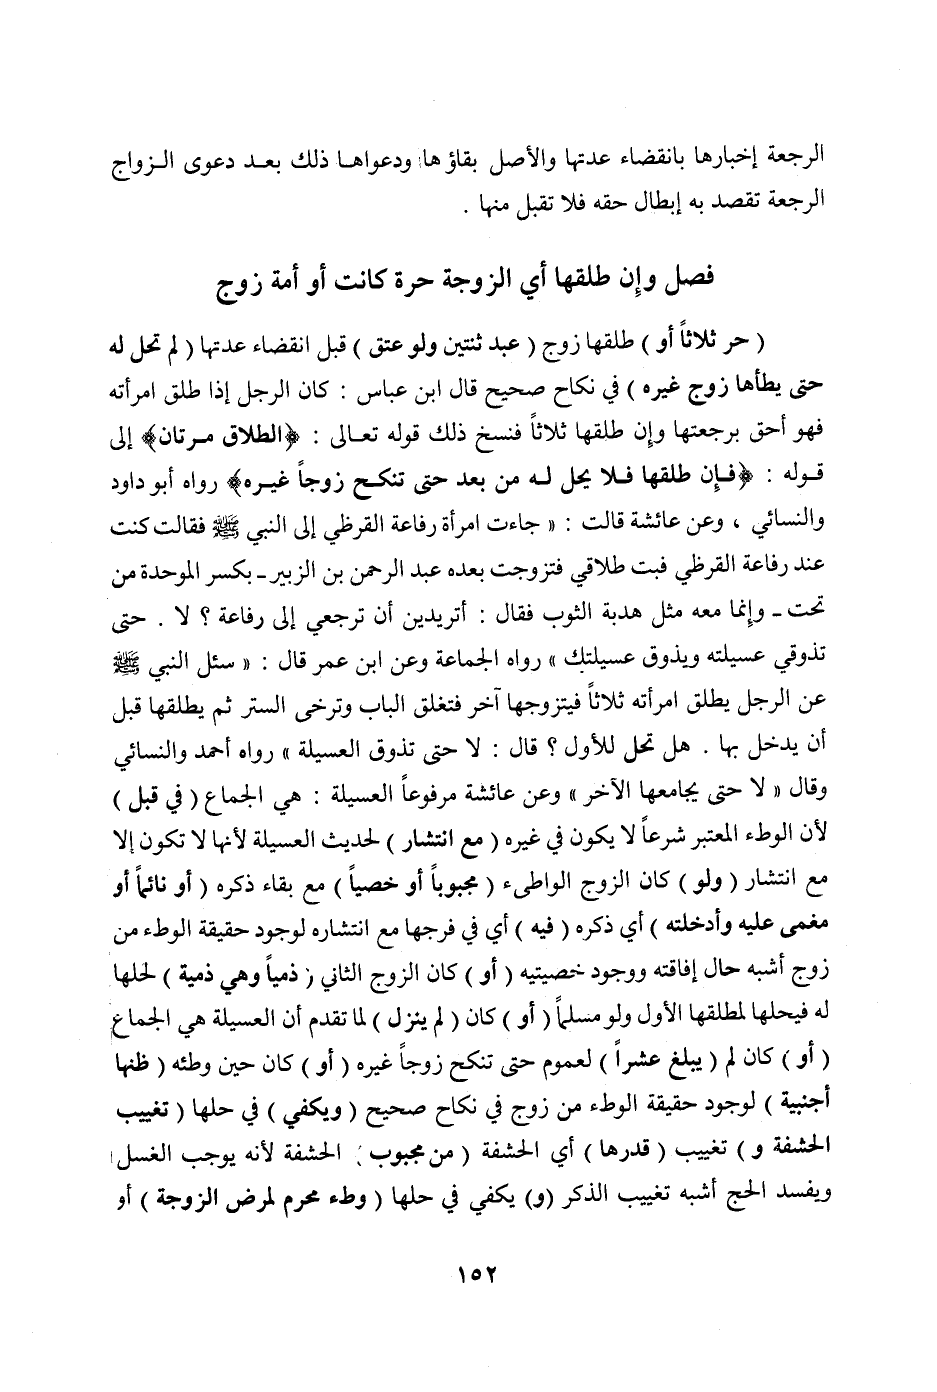 الرجعة إخبارها بانقضاء عدتها والأصل بقاؤها ودعواها ذلك بعد دعوى الزواج
الرجعة تقصد به إبطال حقه فلا تقبل منها .
فصل وإن طلقها أي الزوجة حرة كانت أو أمة زوج
( حر ثلاثاً أو ) طلقها زوج ( عبد ثنتين ولو عتق ) قبل انقضاء عدتها ( لم تحل له
حتى يطأها زوج غيره ) في نكاح صحيح قال ابن عباس : كان الرجل إذا طلق امرأته
فهو أحق برجعتها وإن طلقها ثلاثاً فنسخ ذلك قوله تعالى : ﴿الطلاق مرتان﴾ إلى
قوله : ﴿فإن طلقها فلا يحل له من بعد حتى تنكح زوجاً غيره﴾ رواه أبو داود
والنسائي ، وعن عائشة قالت : « جاءت امرأة رفاعة القرظي إلى النبي ﷺ فقالت كنت
عند رفاعة القرظي فبت طلاقي فتزوجت بعده عبد الرحمن بن الزبير ـ بكسر الموحدة من
تحت ـ وإنما معه مثل هدبة الثوب فقال : أتريدين أن ترجعي إلى رفاعة ؟ لا . حتى
تذوقي عسيلته ويذوق عسيلتك » رواه الجماعة وعن ابن عمر قال : « سئل النبي ﷺ
عن الرجل يطلق امرأته ثلاثاً فيتزوجها آخر فتغلق الباب وترخى الستر ثم يطلقها قبل
أن يدخل بها . هل تحل للأول ؟ قال : لا حتى تذوق العسيلة » رواه أحمد والنسائي
وقال « لا حتى يجامعها الآخر » وعن عائشة مرفوعاً العسيلة : هي الجماع ( في قبل )
لأن الوطء المعتبر شرعاً لا يكون في غيره ( مع انتشار ) لحديث العسيلة لأنها لا تكون إلا
مع انتشار ( ولو ) كان الزوج الواطىء ( مجبوباً أو خصياً ) مع بقاء ذكره ( أو نائماً أو
مغمى عليه وأدخلته ) أي ذكره ( فيه ) أي في فرجها مع انتشاره لوجود حقيقة الوطء من
زوج أشبه حال إفاقته ووجود خصيتيه ( أو ) كان الزوج الثاني ( ذمياً وهي ذمية ) لحلها
له فيحلها لمطلقها الأول ولو مسلماً ( أو ) كان ( لم ينزل ) لما تقدم أن العسيلة هي الجماع
( أو ) كان لم ( يبلغ عشراً ) لعموم حتى تنكح زوجاً غيره ( أو ) كان حين وطئه ( ظنها
أجنبية ) لوجود حقيقة الوطء من زوج في نكاح صحيح ( ويكفي ) في حلها ( تغييب
الحشفة و ) تغييب ( قدرها ) أي الحشفة ( من مجبوب ) الحشفة لأنه يوجب الغسل
ويفسد الحج أشبه تغييب الذكر (و) يكفي في حلها ( وطء محرم لمرض الزوجة ) أو
١٥٢